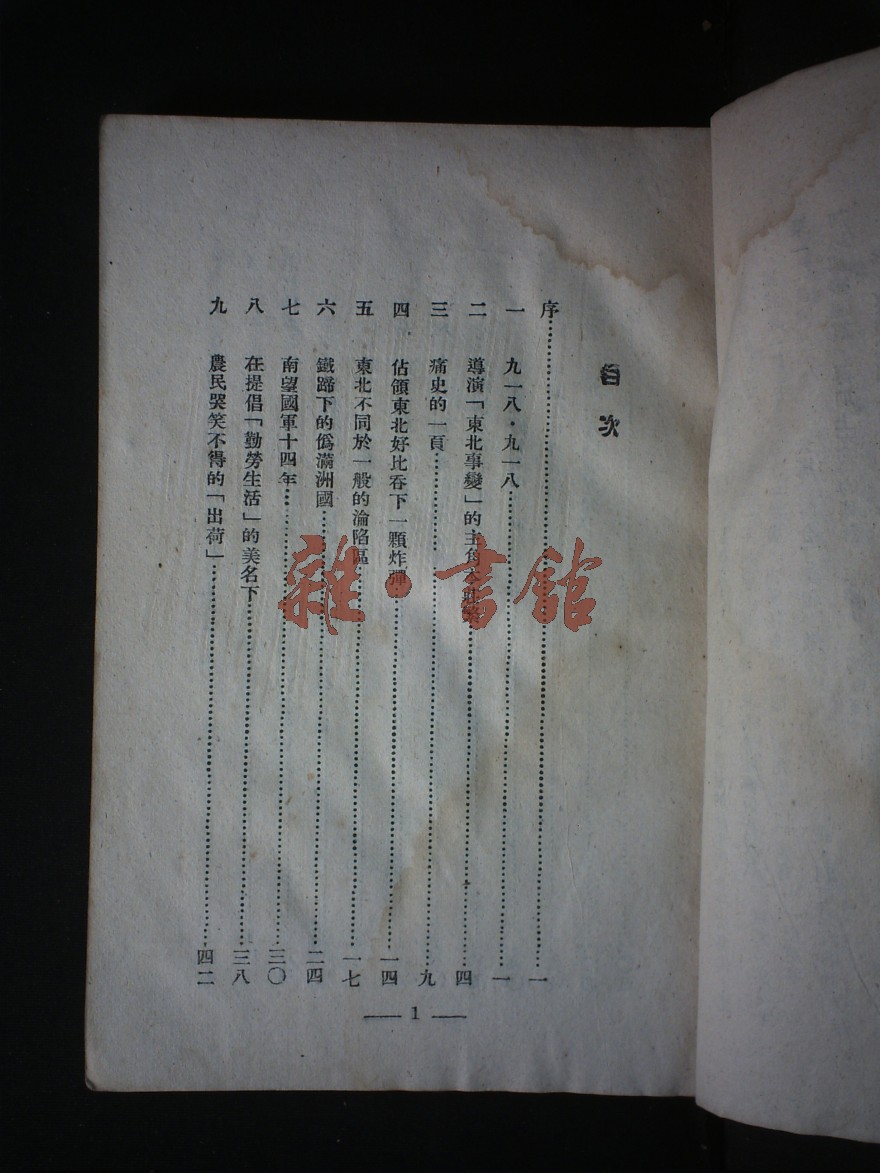 目次
序……一
一 九一八・九一八……一
二 導演「東北事變」的主角……四
三 痛史的一頁……九
四 佔領東北好比吞下一顆炸彈……一四
五 東北不同於一般的淪陷區……一七
六 鐵蹄下的僞滿洲國……二四
七 南望國軍十四年……三〇
八 在提倡「勤勞生活」的美名下……三八
九 農民哭笑不得的「出荷」……四二
— 1 —
雜·書館